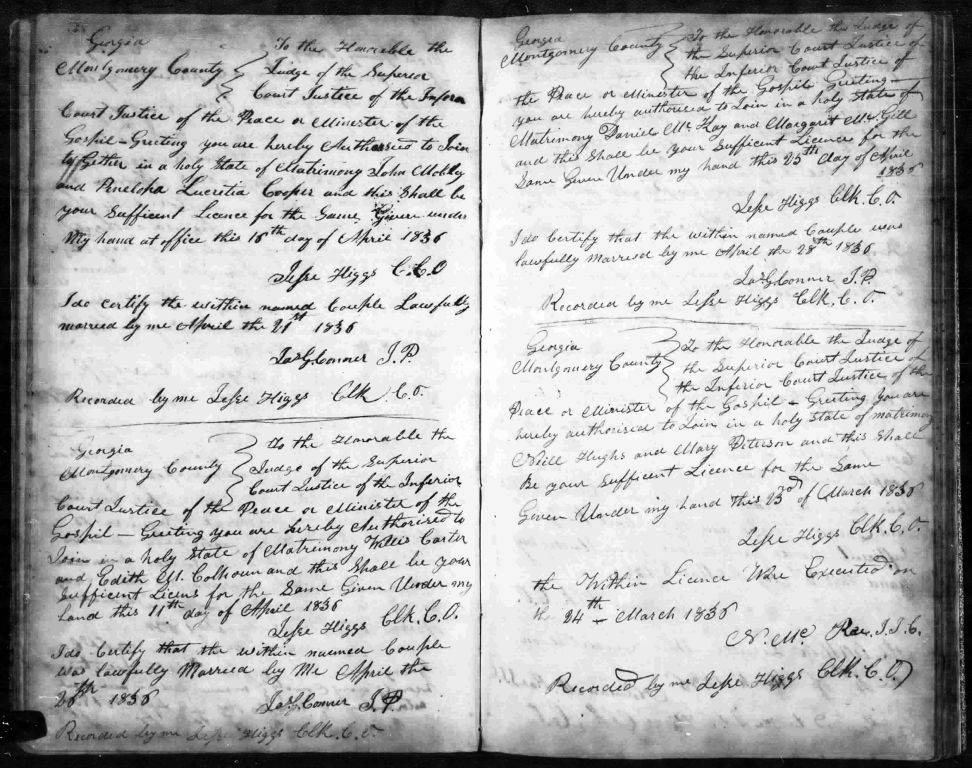 Georgia
Montgomery County
To the Honorable the
Judge of the Superior
Court Justice of the Inferor
Court Justice of the Peace or Minister of the
Gospil - Greeting you are hereby Authorsied to Join
together in a holy State of Matrimony John Mobley
and Penelopa Lucretia Cooper and this Shall be
your Sufficent Licence for the Same Given under
My hand at office this 16th day of April 1836
Jesse Higgs C.C.O
I do certify the within named Couple Lawfully
married by me April the 21st 1836
Jas G Conner J.P.
Recorded by me Jesse Higgs Clk. C.O.
Georgia
Montgomery County
To the Honorable the
Judge of the Superior
Court Justice of the Inferior
Court Justice of the Peace or Minister of the
Gospil - Greeting you are hereby Authorised to
Join in a holy State of Matrimony Willis Carter
and Edith M. Colhoun and this Shall be your
Sufficent Licens for the Same Given Under my
hand this 11th day of April 1836
Jesse Higgs Clk. C.O.
I do Certify that the within named Couple
was lawfully Married by Me April the
26th 1836 Jas G Conner J.P.
Recorded by me Jesse Higgs Clk. C.O.
Georgia
Montgomery County
To the Honorable the Judge of
the Superior Court Justice of
the Inferior Court Justice of
the Peace or Minister of the Gospel Greeting
you are hereby authorised to Join in a holy State of
Matrimony Daniel Mc Kay and Margarit Mc Gill
and this Shall be your Sufficent Licence for the
Same Given Under my hand this 25th day of April
1836
Jesse Higgs Clk. C.O.
I do Certify that the within named Couple was
lawfully Married by me April the 28th 1836
Jas G Conner J.P.
Recorded by me Jesse Higgs Clk. C.O.
Georgia
Montgomery County
To the Honorable the Judge of
the Superior Court Justice of
the Inferior Court Justice of the
Peace or Minister of the Gospil - Greeting you are
hereby authorised to Join in a holy State of matrimony
Niell Hughs and Mary Peterson and this Shall
Be your Sufficent Licence for the Same
Given Under my hand this 23rd of March 1836
Jesse Higgs Clk. C.O.
the Within Licence Were Executed on
the 24th March 1836
N. Mc Rae. J.I.C.
Recorded by me Jesse Higgs Clk. C.O.